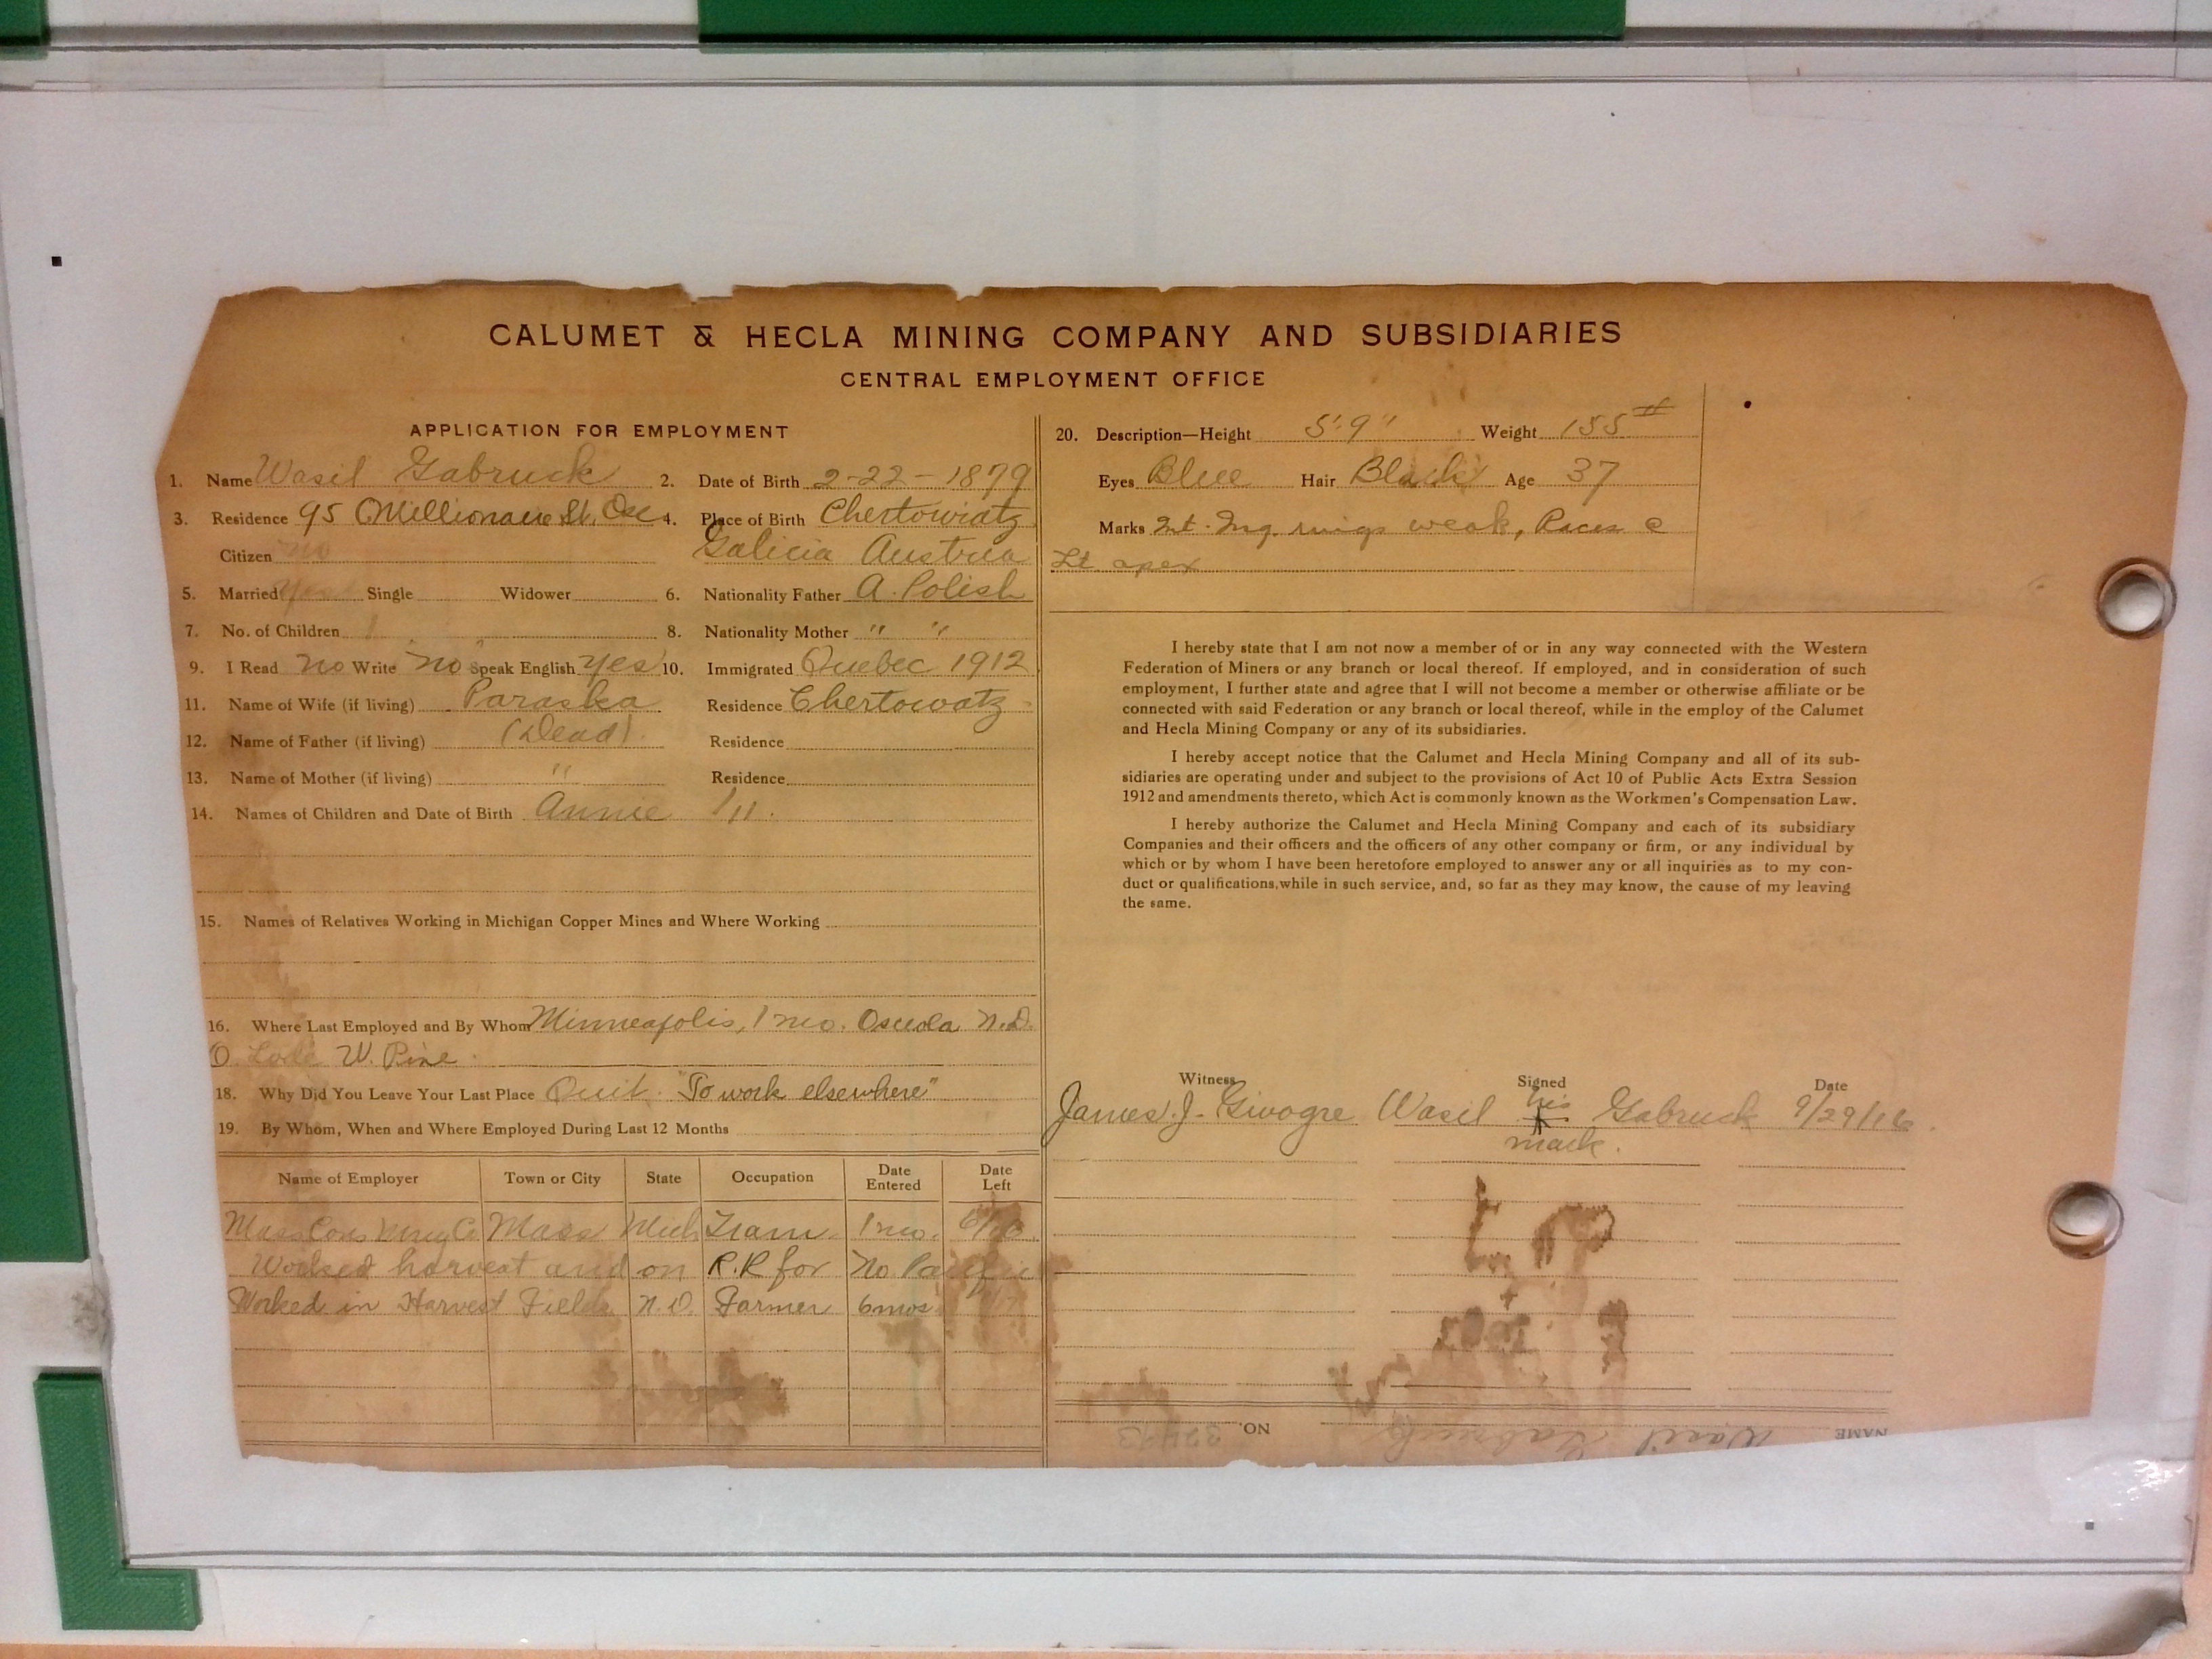 CALUMET & HECLA MINING COMPANY AND SUBSIDIARIES
CENTRAL EMPLOYMENT OFFICE
APPLICATION FOR EMPLOYMENT
1. Name Wasil Gabruck 2. Date of Birth 2-22-1879
3. Residence 95 Millionaire St. Osc. 4. Place of Birth Chertowatz
Citizen no Galicia Austria
5. Married Yes Single Widower 6. Nationality Father A. Polish
7. No. of Children 1 8. Nationality Mother " "
9. I Read no Write no Speak English yes 10. Immigrated Quebec 1912
11. Name of Wife (if living) Paraska Residence Chertowatz
12. Name of Father (if living) (Dead) Residence
13. Name of Mother (if living) " Residence
14. Names of Children and Date of Birth Annie 1/11.
15. Names of Relatives Working in Michigan Copper Mines and Where Working
16. Where Last Employed and By Whom Minneapolis, 1 mo. Osceola N.D.
O. Lode W. Pine
18. Why Did You Leave Your Last Place Quit. "To work elsewhere"
19. By Whom, When and Where Employed During Last 12 Months
Name of Employer Town or City State Occupation Date Entered Date Left
Mass Cons Mng Co Mass Mich Tram. 1 mo. 6/16.
Worked harvest and on R.R for No Pacific
Worked in Harvest Fields N.D. Farmer 6 mos.
20. Description—Height 5'.9" Weight 155#
Eyes Blue Hair Black Age 37
Marks Int. Ing. rings weak, Races c
Lt apex
I hereby state that I am not now a member of or in any way connected with the Western
Federation of Miners or any branch or local thereof. If employed, and in consideration of such
employment, I further state and agree that I will not become a member or otherwise affiliate or be
connected with said Federation or any branch or local thereof, while in the employ of the Calumet
and Hecla Mining Company or any of its subsidiaries.
I hereby accept notice that the Calumet and Hecla Mining Company and all of its sub-
sidiaries are operating under and subject to the provisions of Act 10 of Public Acts Extra Session
1912 and amendments thereto, which Act is commonly known as the Workmen's Compensation Law.
I hereby authorize the Calumet and Hecla Mining Company and each of its subsidiary
Companies and their officers and the officers of any other company or firm, or any individual by
which or by whom I have been heretofore employed to answer any or all inquiries as to my con-
duct or qualifications,while in such service, and, so far as they may know, the cause of my leaving
the same.
Witness Signed Date
James J. Givogre Wasil his Gabruck 9/29/16.
mark.
NAME Wasil Gabruck NO.